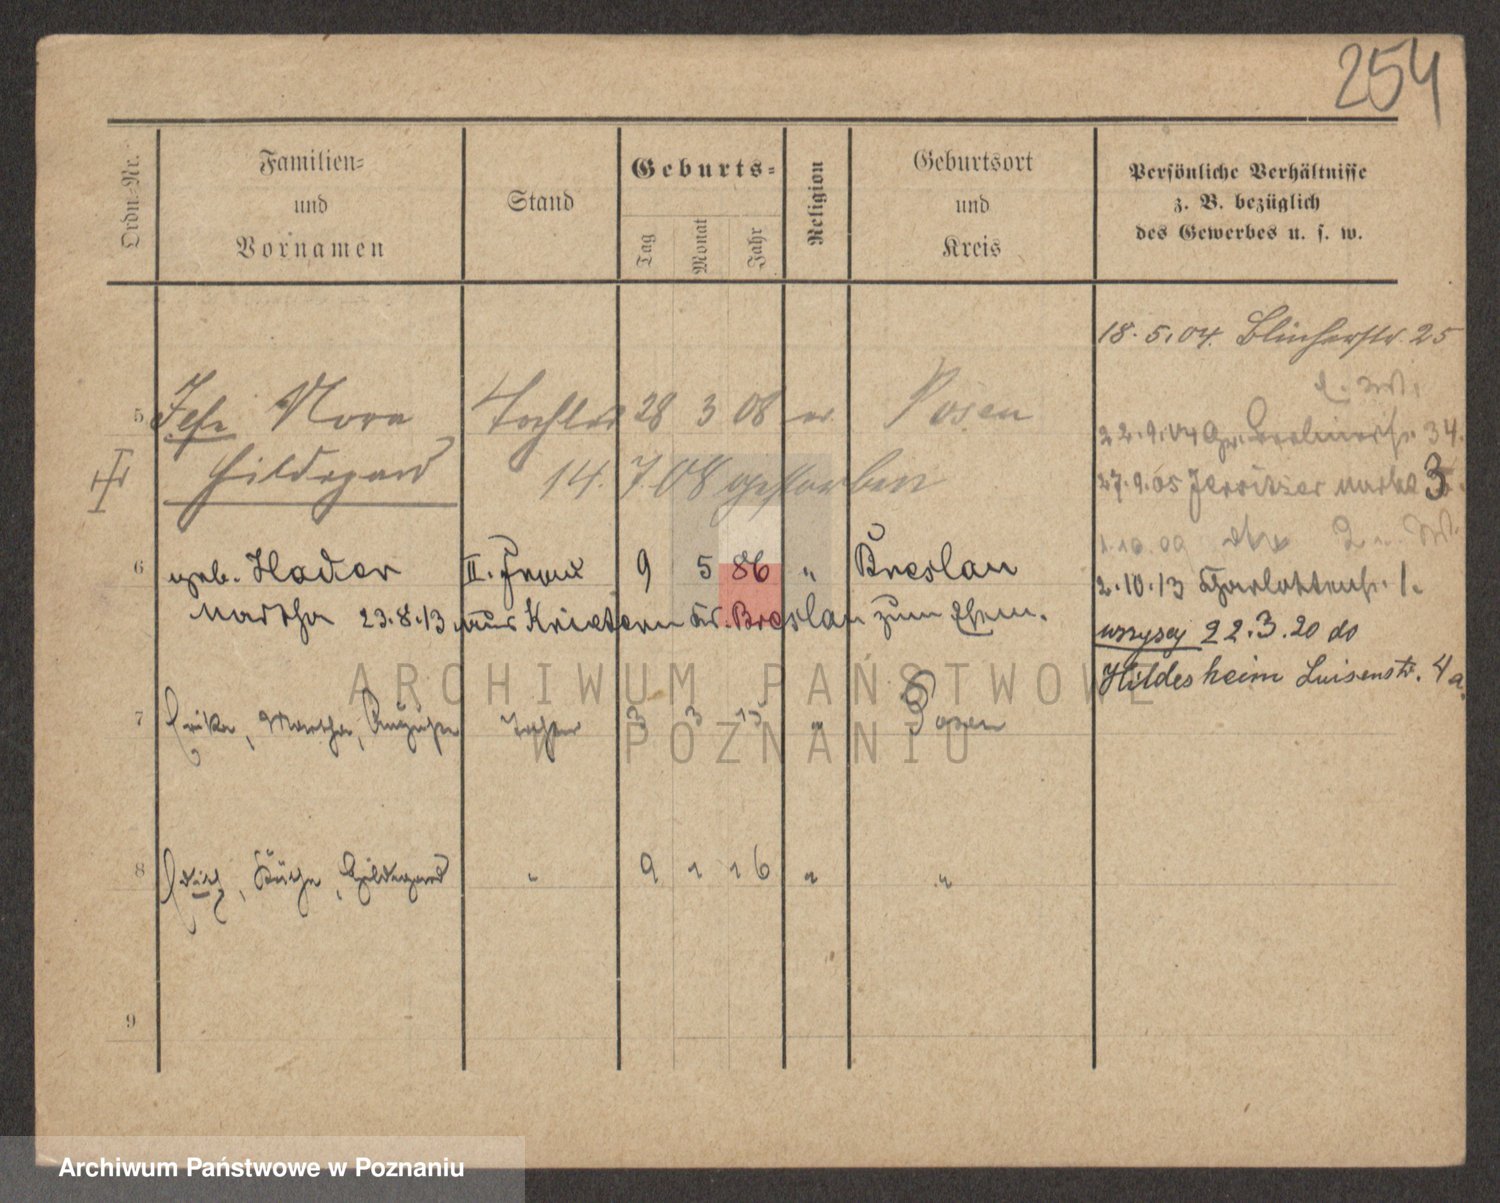 254
Ordn.-Nr.
Familien-
und
Vornamen
Stand
Geburts-
Tag
Monat
Jahr
Religion
Geburtsort
und
Kreis
Persönliche Verhältnisse
z. B. bezüglich
des Gewerbes u. s. w.
18.5.04. Blücherstr. 25
5 Nora Tochter 28 3 08 Posen
22.9.04 Gr. Berlinerstr. 34.
Hildegard 14.7.08 gestorben
27.9.05 Jersitzer Markt 3
1.10.09
6 geb. Hader II. Frau 9 5 86 " Breslau
2.10.13 Charlottenstr. 1.
Martha 23.8.13 aus Krietern Kr. Breslau zum Ehem.
wszyscy 22.3.20 do
Hildesheim Luisenstr. 4a.
7 Erika, Martha, Auguste Tochter 3 3 15 " Posen
8 Käthe, Hildegard " 9 1 16 " "
9
ARCHIWUM PAŃSTWOWE
W POZNANIU
Archiwum Państwowe w Poznaniu